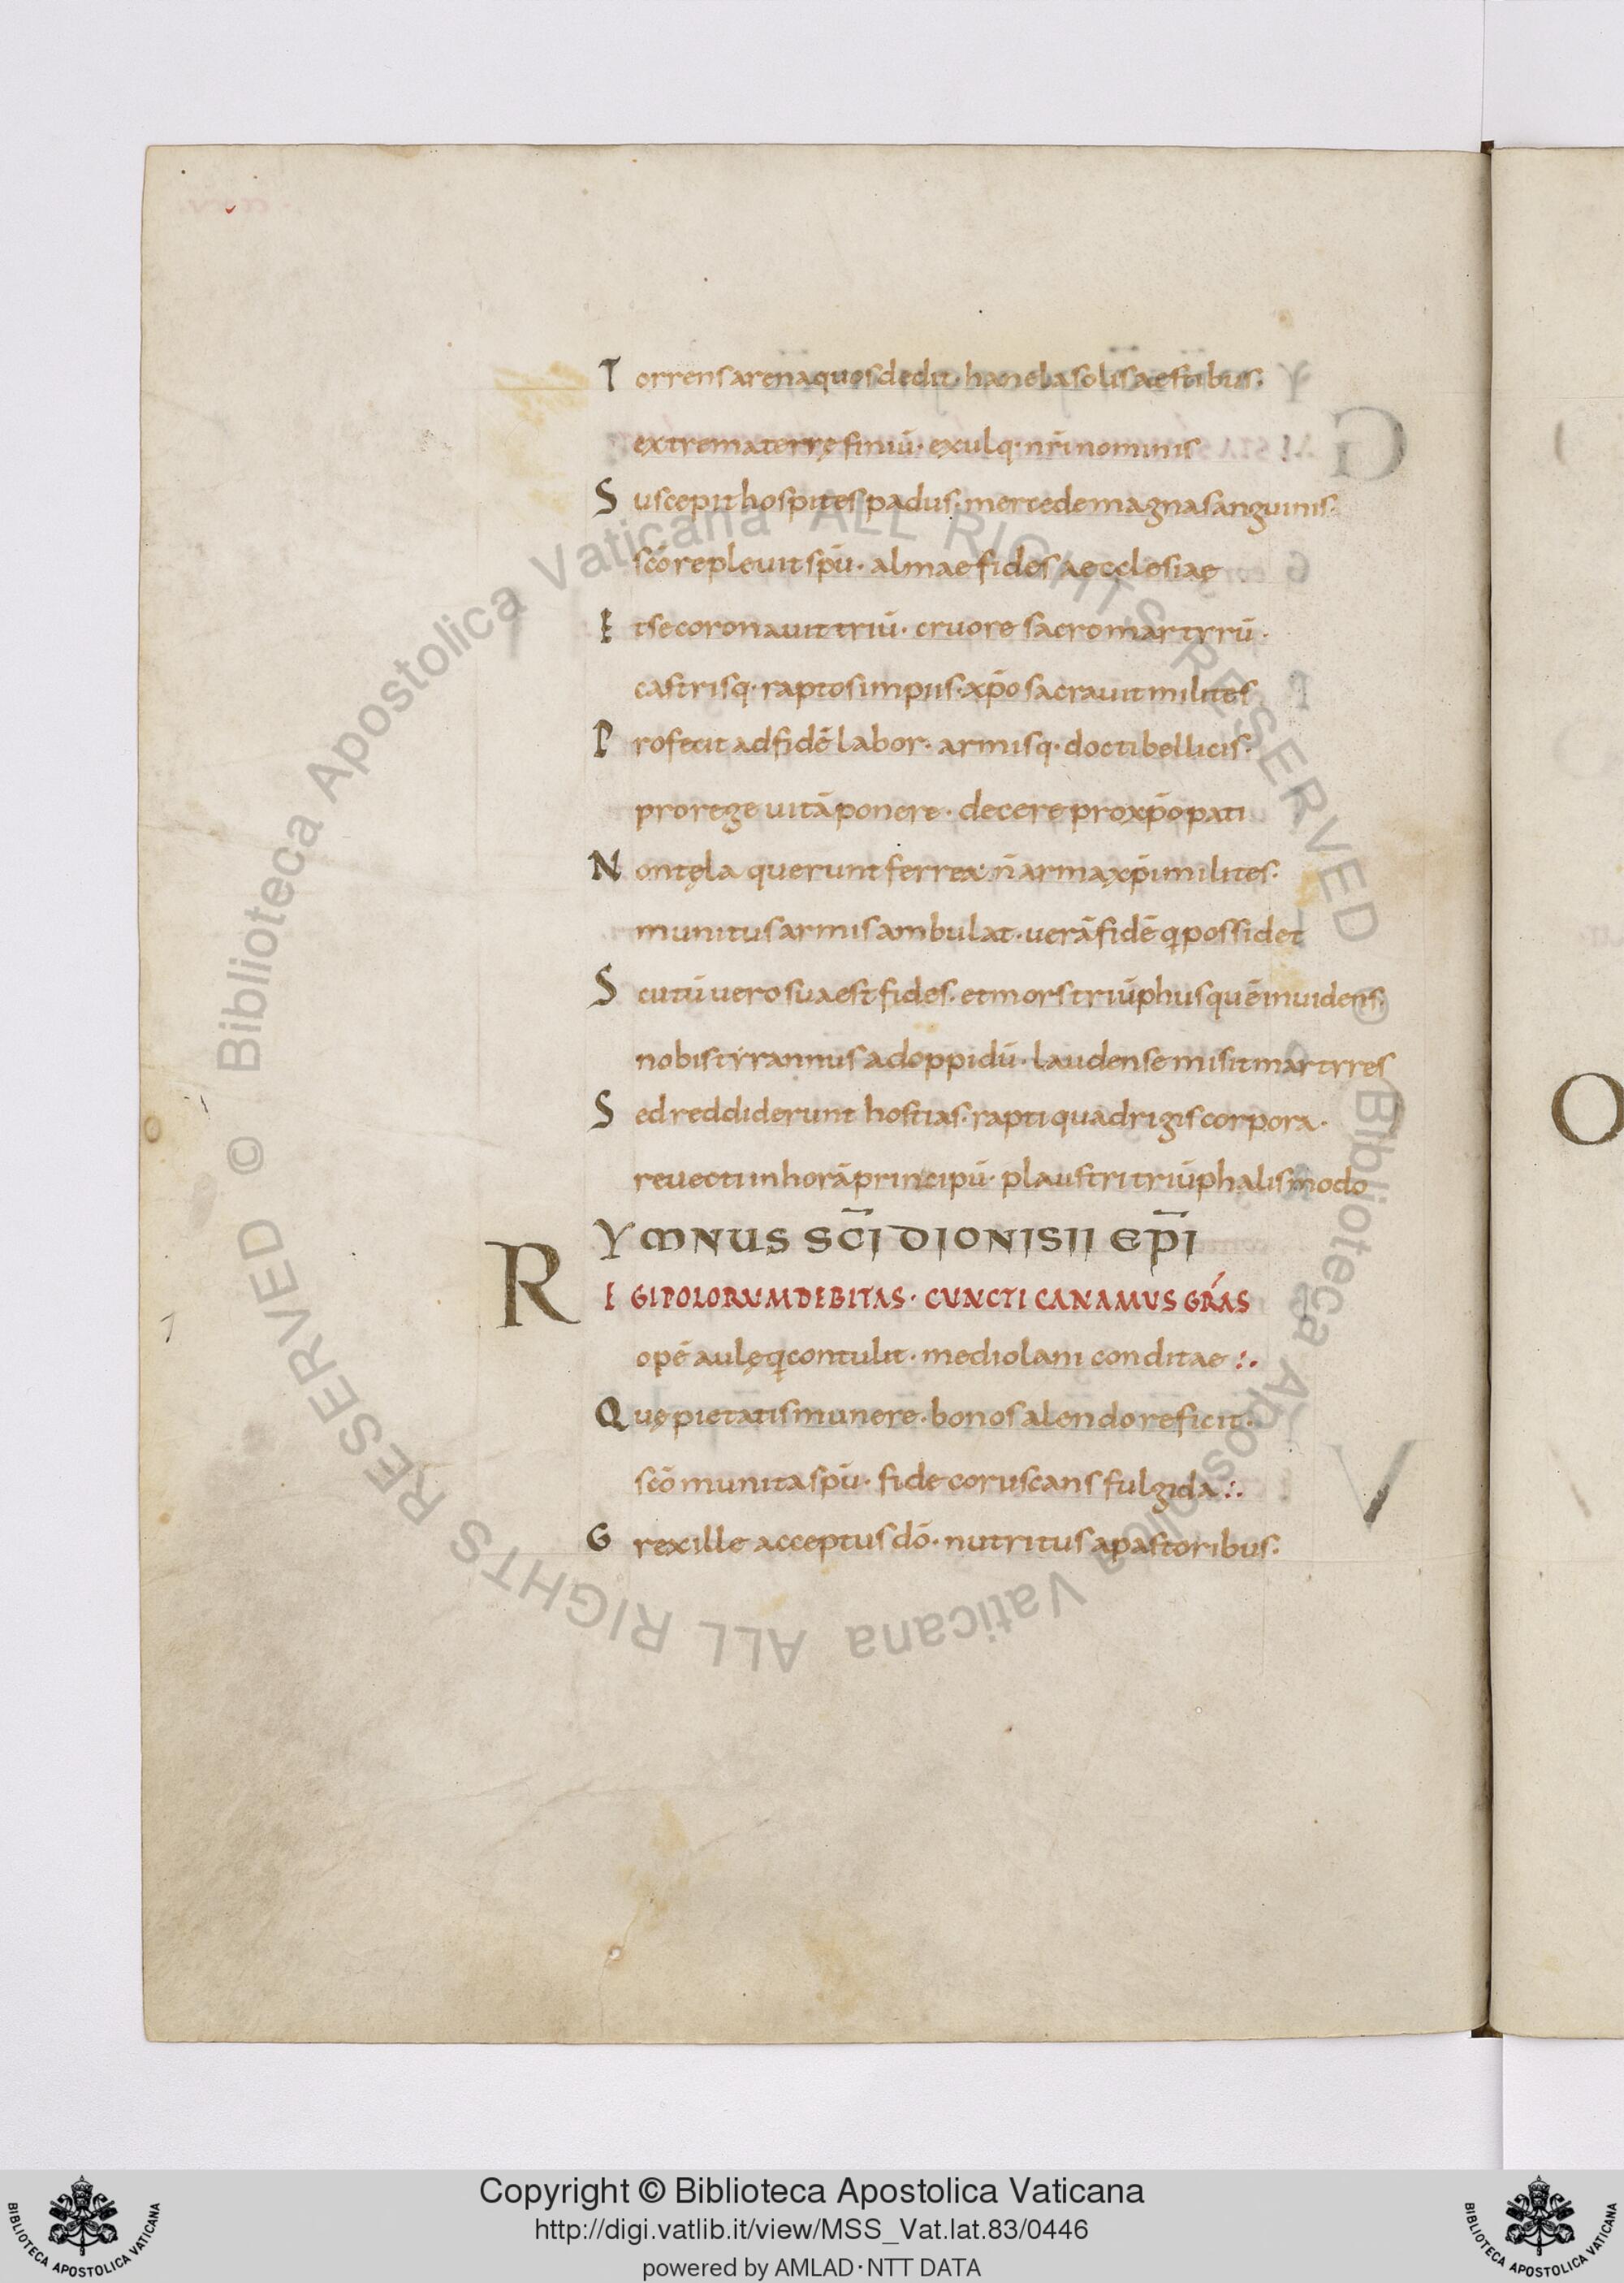 Torrens arena quos dedit· hanela solis aestibus·
extrema terrę finiū· exulq· nr̄i nominis
Suscepit hospites padus· mercede magna sanguinis·
scō repleuit sp̄u· almae fides aecclesiae
Et se coronauit triū· cruore sacro martyrū·
castrisq· raptos impiis· xp̄o sacrauit milites
Profecit ad fidē labor· armisq· docti bellicis·
pro rege uitā ponere· decere pro xp̄o pati
Non tęla querunt ferrea· n̄ arma xp̄i milites·
munitus armis ambulat· uerā fidē q possidet
Scutū uero sua est fides· et mors triūphus quē inuidens·
nobis tyrannus ad oppidū· laudense misit martyres
Sed reddiderunt hostias· rapti quadrigis corpora·
reuecti in horā principū· plaustri triūphalis modo
YMNUS SC̄I DIONISII EP̄I
REGI POLORUM DEBITAS· CUNCTI CANAMUS GR̄AS
opē aulę q contulit· mediolani conditae :·
Quę pietatis munere· bonos alendo reficit·
scō munita sp̄u· fide coruscans fulgida :·
Grex ille acceptus dō· nutritus a pastoribus·
O
© Biblioteca Apostolica Vaticana ALL RIGHTS RESERVED
© Biblioteca Apostolica Vaticana ALL RIGHTS RESERVED
Copyright © Biblioteca Apostolica Vaticana
http://digi.vatlib.it/view/MSS_Vat.lat.83/0446
powered by AMLAD·NTT DATA
BIBLIOTECA APOSTOLICA VATICANA
BIBLIOTECA APOSTOLICA VATICANA